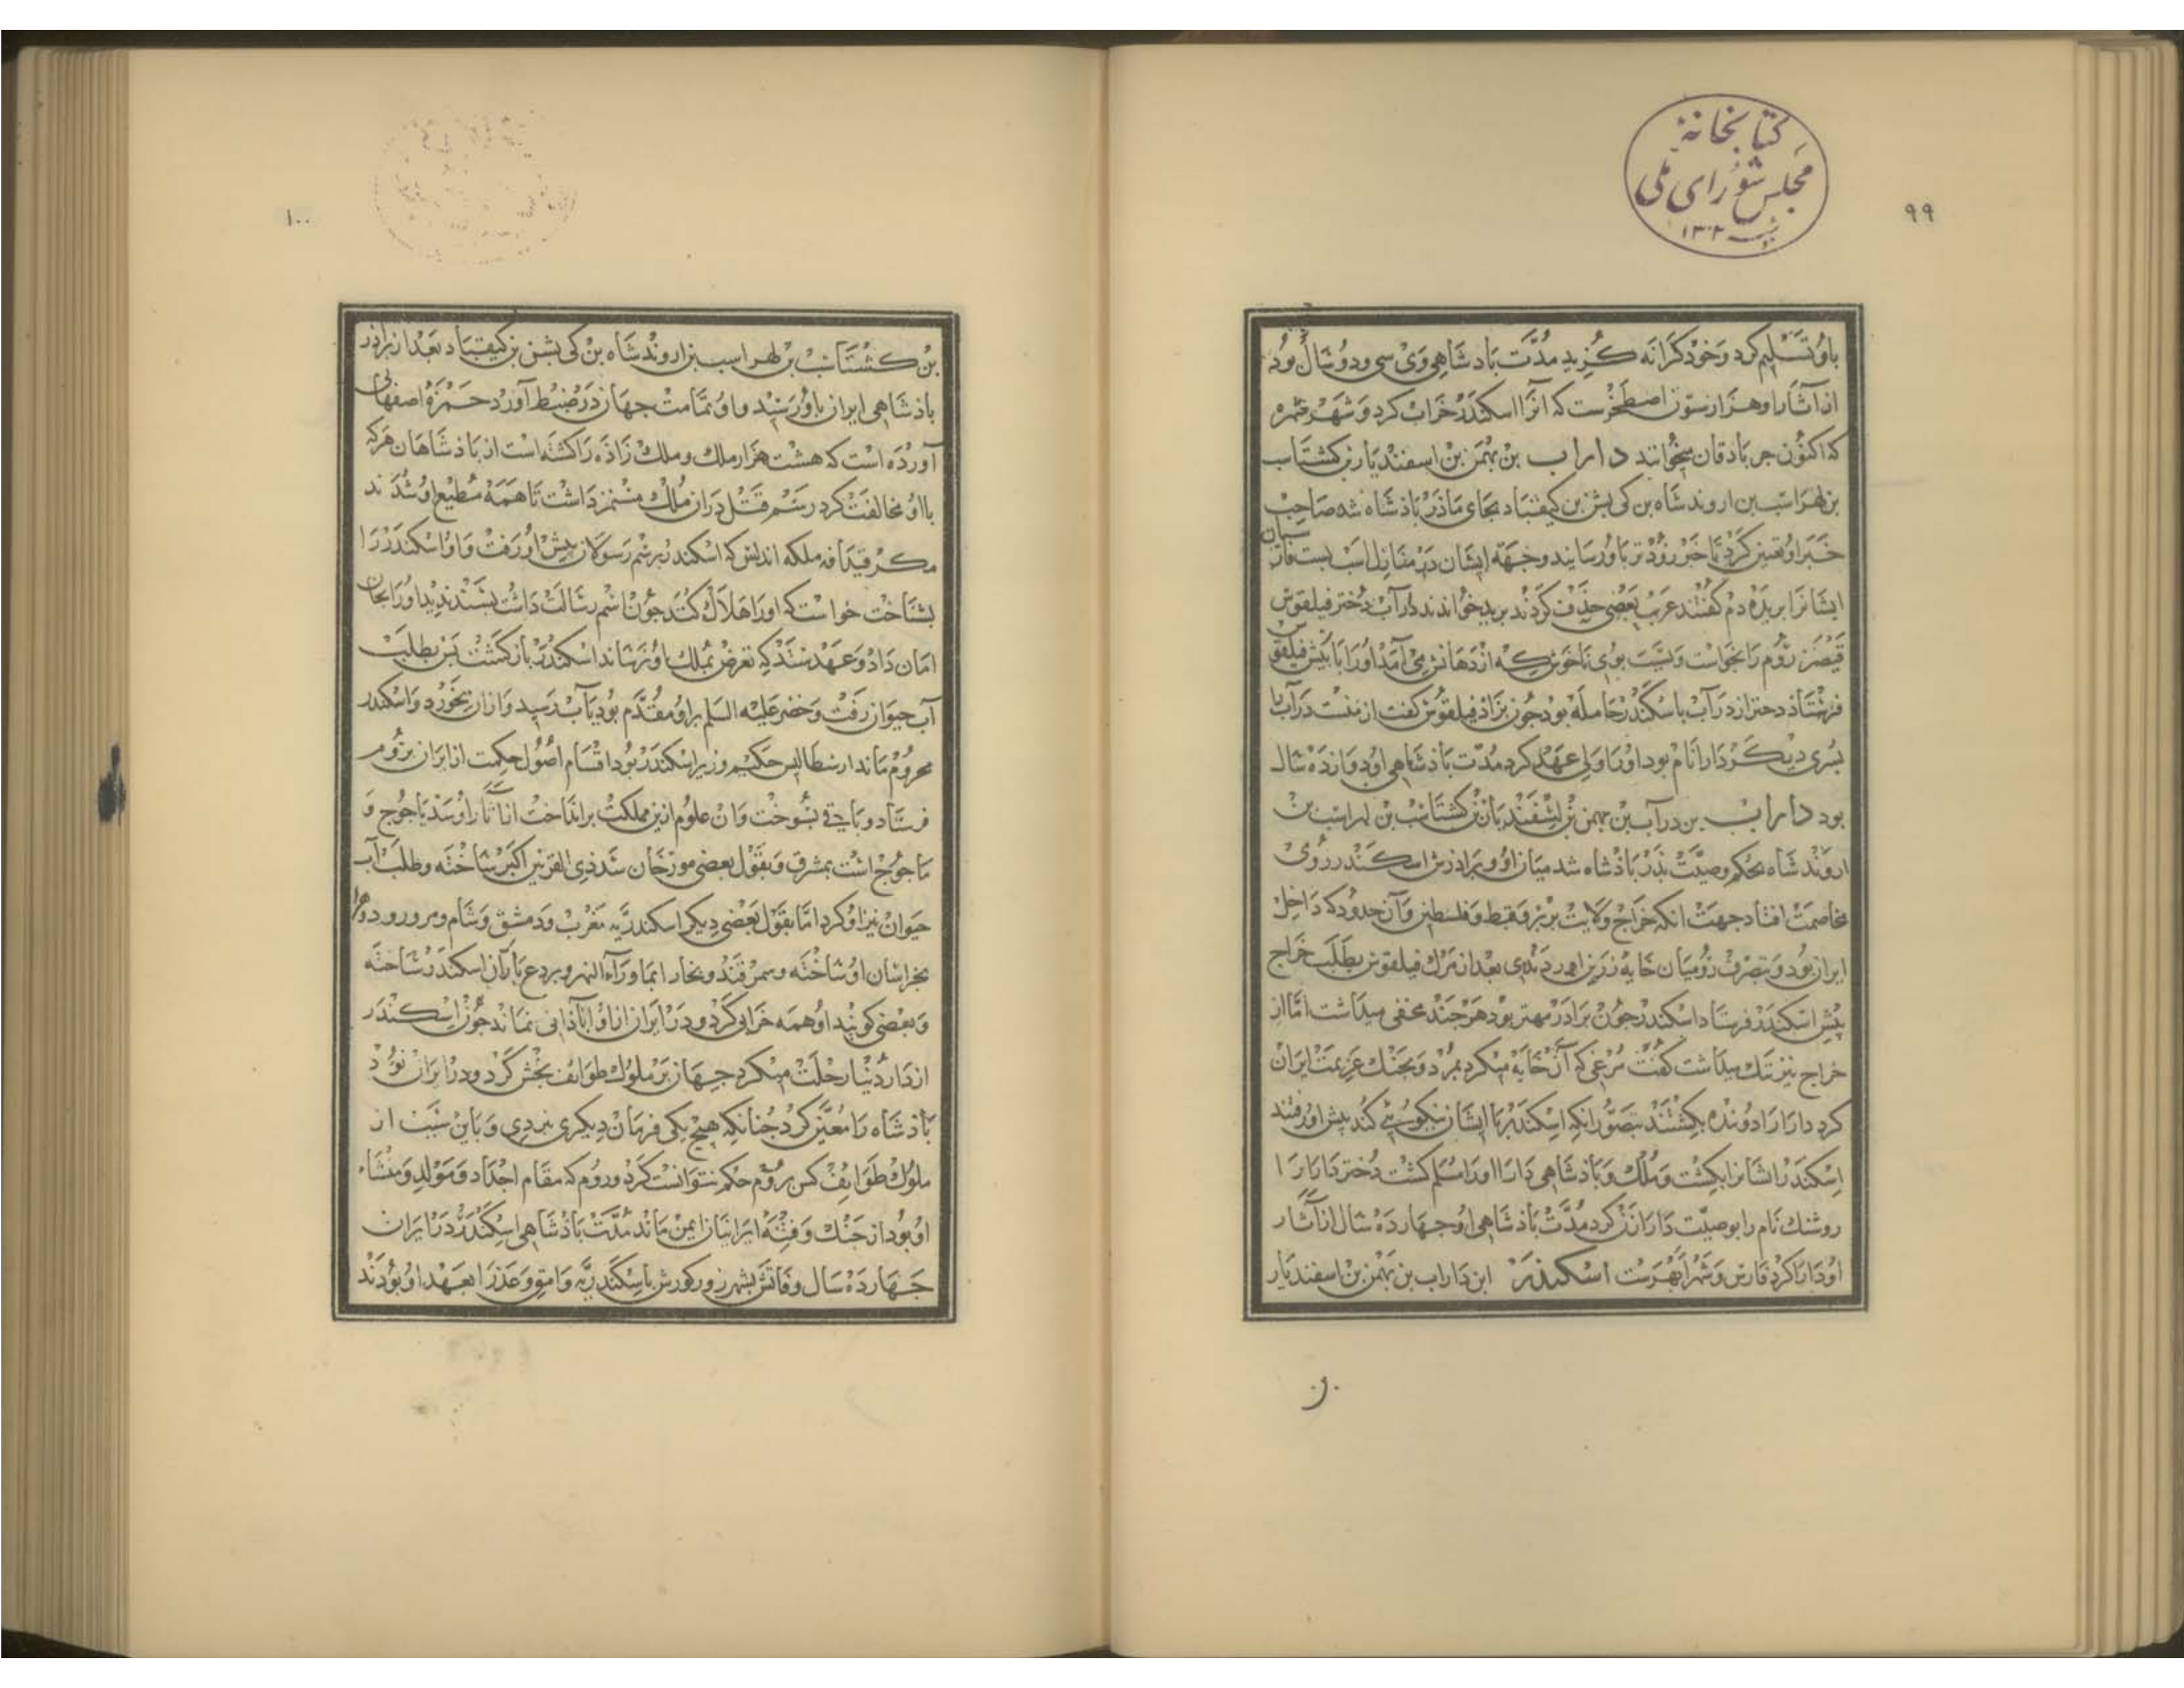 کتابخانهٔ
مجلس شورای ملی
۱۳۰۲
۹۹
باو تسلیم کرد و خود کرانه کزید مدّت بادشاهی وی سی و دو سال بود
از آثار او هزار ستون اصطخرست که آنرا اسکندر خراب کرد و شهر خمره
که اکنون جرباذقان میخوانند داراب بن بهمن بن اسفندیار بن کشتاسب
بن لهراسب بن اروند شاه بن کی بشن بن کیقباد بجای ماذر باذشاه شد صاحب
خبر او تعیین کرد تا خبر زودتر باو رسانید و جهة ایشان در منازل اسب بست
ایشانرا بریده دم کفتند عرب بعضی حذف کردند برید خواندند دارآب دختر فیلقوس
قیصر روم را بخواست و بسبب بوی ناخوش که از دهانش می آمد او را با پیش فیلقوس
فرستاذ دختر از درآب باسکندر حامله بود جون بزاذ فیلقوس کفت از منست درآب را
پسری دیکر دارا نام بود او را ولی عهد کرد مدّت باذشاهی او دوازده سال
بود داراب بن درآب بن بهمن بن اسفندیار بن کشتاسب بن لهراسب بن
اروند شاه بحکم وصیّت پذر باذشاه شد میان او و براذرش اسکندر رومی
مخاصمت افتاد جهت انکه خراج ولایت بربر و قبط و فلسطین و آن حدود که داخل
ایران بود و بتصرف رومیان خایه زرین بعد از مرک فیلقوس بطلب خراج
پیش اسکندر فرستاد اسکندر جون برادر مهتر بود هرجند مخفی میداشت امّا از
خراج نیز ننک میداشت کفت مرغی که آن خایه میکرد بمرد و بجنک عزیمت ایران
کرد دارا را دو بنده بکشتند بتصوّر انکه اسکندر با ایشان نیکویی کند پیش او رفتند
اسکندر ایشانرا بکشت و ملک و باذشاهی دارا او را مسلم کشت دختر دارا را
روشنک نام را بوصیّت دارا کرد مدّت باذشاهی او جهارده سال از آثار
او دارا کرد فارس و شهر ابهرست اسکندر ابن داراب بن بهمن بن اسفندیار
بن
۱۰۰
بن کشتاسب بن لهراسب بن اروند شاه بن کی بشن بن کیقباد بعد از براذر
باذشاهی ایران باو رسید و او تمامت جهان در ضبط آورد حمزه اصفهانی
آورده است که هشت هزار ملک و ملک زاده را کشته است از باذشاهان هرکه
با او مخالفت کرد رسم قتل دران ملک مستمر داشت تا همه مطیع او شدند
مکر قیدافه ملکه اندلس که اسکندر برسم رسولان پیش او رفت و او اسکندر را
بشناخت خواست که او را هلاک کند جون اسم رسالت داشت بسندیده ندید او را بجان
امان داد و عهد ستد که تعرض بملک او نرساند اسکندر بازکشت پس بطلب
آب حیوان رفت و خضر علیه السلم براو مقدّم بود بآب رسید و ازان بخورد و اسکندر
محروم ماند ارسطالیس حکیم وزیر اسکندر بود اقسام اصول حکمت از ایران بروم
فرستاد و باقی بسوخت و ان علوم ازین مملکت برانداخت از آثار او سد یاجوج و
ماجوج است بمشرق و بقول بعضی مورخان سد ذی القرنین اکبر ساخته و طلب آب
حیوان نیز او کرد امّا بقول بعضی دیکر اسکندریّه مغرب و دمشق و شام و مرورود و هراة
بخراسان او ساخته و سمرقند و بخارا بماورآء النهر و بردع باران اسکندر ساخته
و بعضی کویند او همه خرابی کرد و در ایران از او آباذانی نماند جون اسکندر
از دار دنیا رحلت میکرد جهان بر ملوک طوایف بخش کرد و در ایران نود
باذشاه را معیّن کرد جنانکه هیج یکی فرمان دیکری نبردی و باین سبب از
ملوک طوایف کس بروم حکم نتوانست کرد و روم که مقام اجداد و مولد و منشاء
او بود از جنک و فتنهٔ ایرانیان ایمن ماند مدّت باذشاهی اسکندر در ایران
جهارده سال وفاتش بشهرزور کورش باسکندریّه وامق و عذرا بعهد او بودند